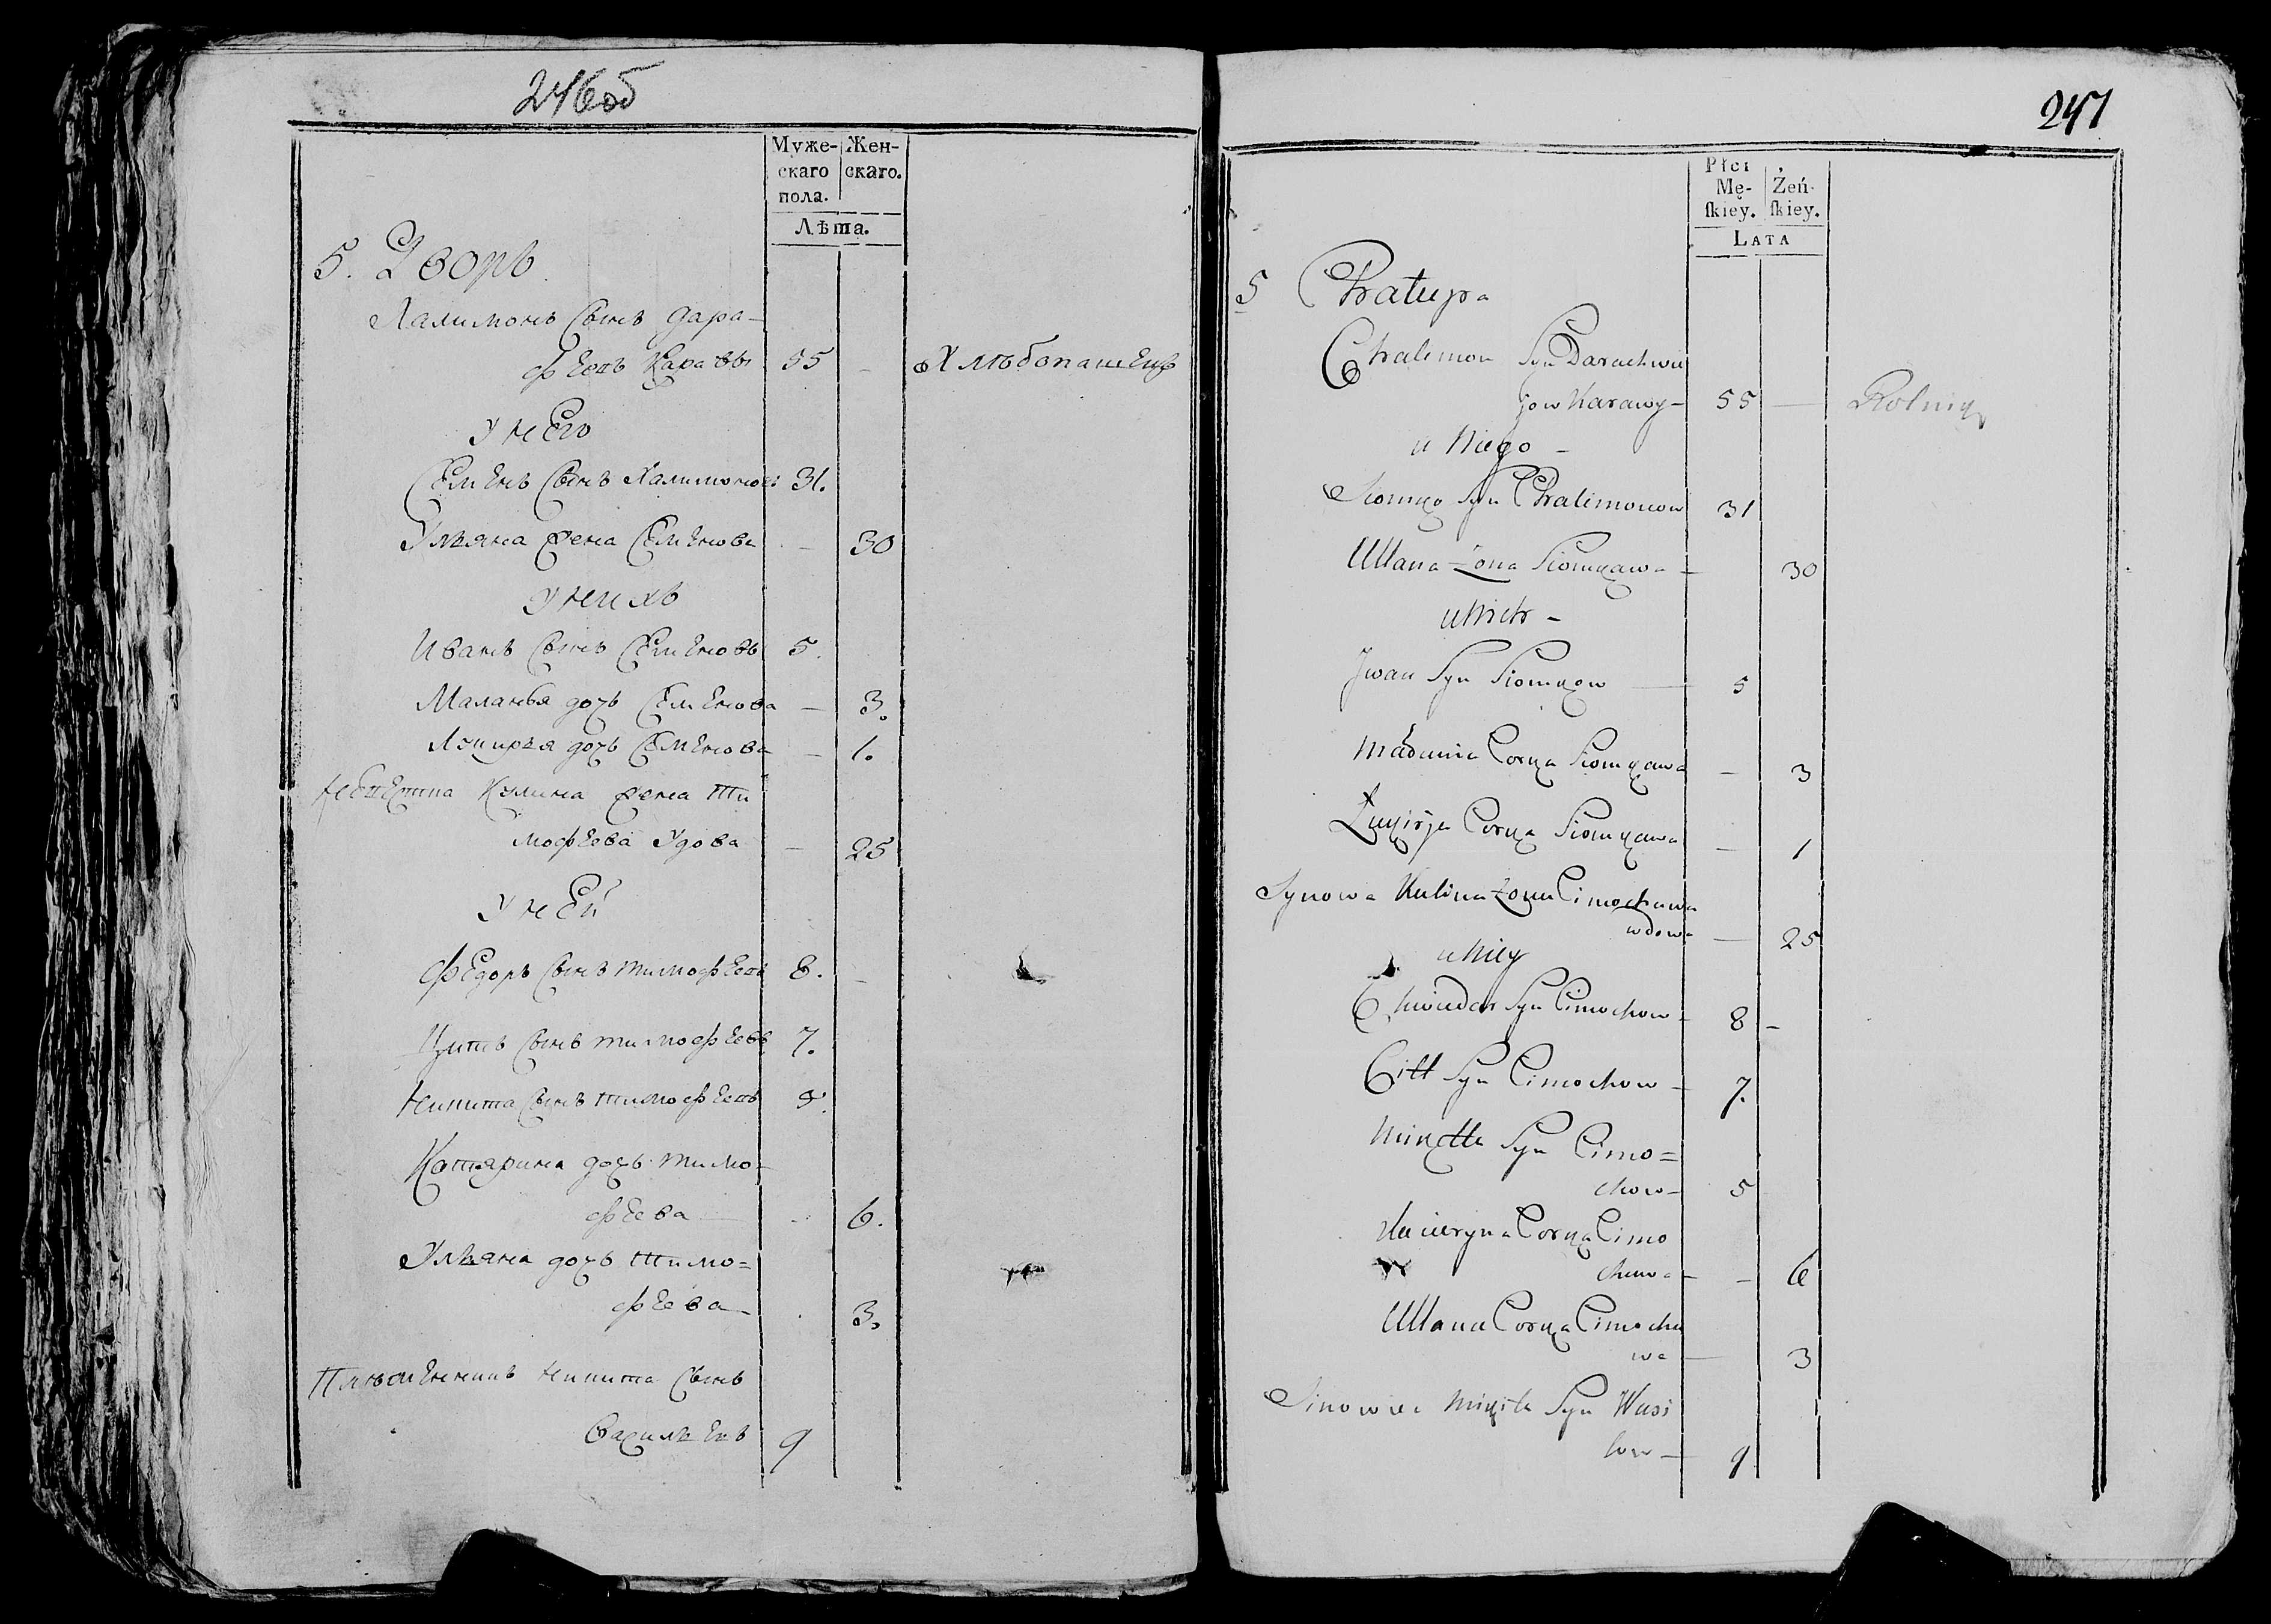 246об
Муже-
скаго
пола.
Жен-
скаго.
Лѣта.
5. Дворъ
Халимонъ сынъ Дара-
фѣевъ Каравы 55 - Хлѣбопашецъ
у него
Семенъ сынъ Халимоновъ 31.
Ульяна жена Семенова - 30
у нихъ
Иванъ сынъ Семеновъ 5.
Маланья дочь Семенова - 3.
дочь Семенова - 1.
Невестка Кулина жена Ти
мофеева удова - 25
у ней
Федоръ сынъ Тимофеевъ 8. -
Цитъ сынъ Тимофеевъ 7.
Никита сынъ Тимофеевъ 5.
Катярина дочь Тимо-
феева - 6.
Ульяна дочь Тимо=
феева - 3.
Племенникъ Никита сынъ
Васильевъ 9
247
Płci
Mę-
ſkiey.
Żeń-
ſkiey.
LATA
5 Chatupa
Chalimon Syn Darachwie
jow Karawy - 55 - Rolnik
u Niego -
Siomko Syn Chalimonow 31
Ullana Żona Siomkowa - 30
u Nich -
Jwan Syn Siomkow - 5
Corka Siomkowa - 3
Łukirja Corka Siomkowa - 1
Synowa Kulina Żona Cimochowa
wdowa - 25
u Niey
Chwiedor Syn Cimochow - 8 -
Citt Syn Cimochow - 7.
Mikitta Syn Cimo=
chow - 5
Kacieryna Corka Cimo
chowa - - 6
Ullana Corka Cimocho
wa - 3
Sinowiec Mikita Syn Wasi
low - 9